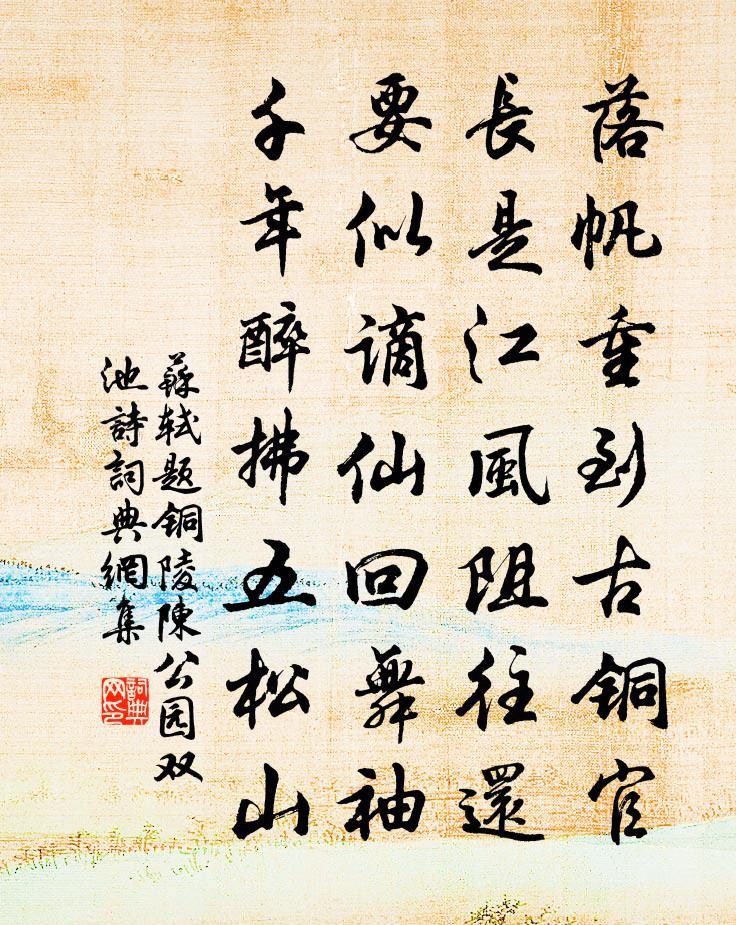 落帆重到古銅官
長是江風阻往還
要似謫仙回舞袖
千年醉拂五松山
蘇軾题铜陵陳公园双
池詩詞典網集
詞典
网印